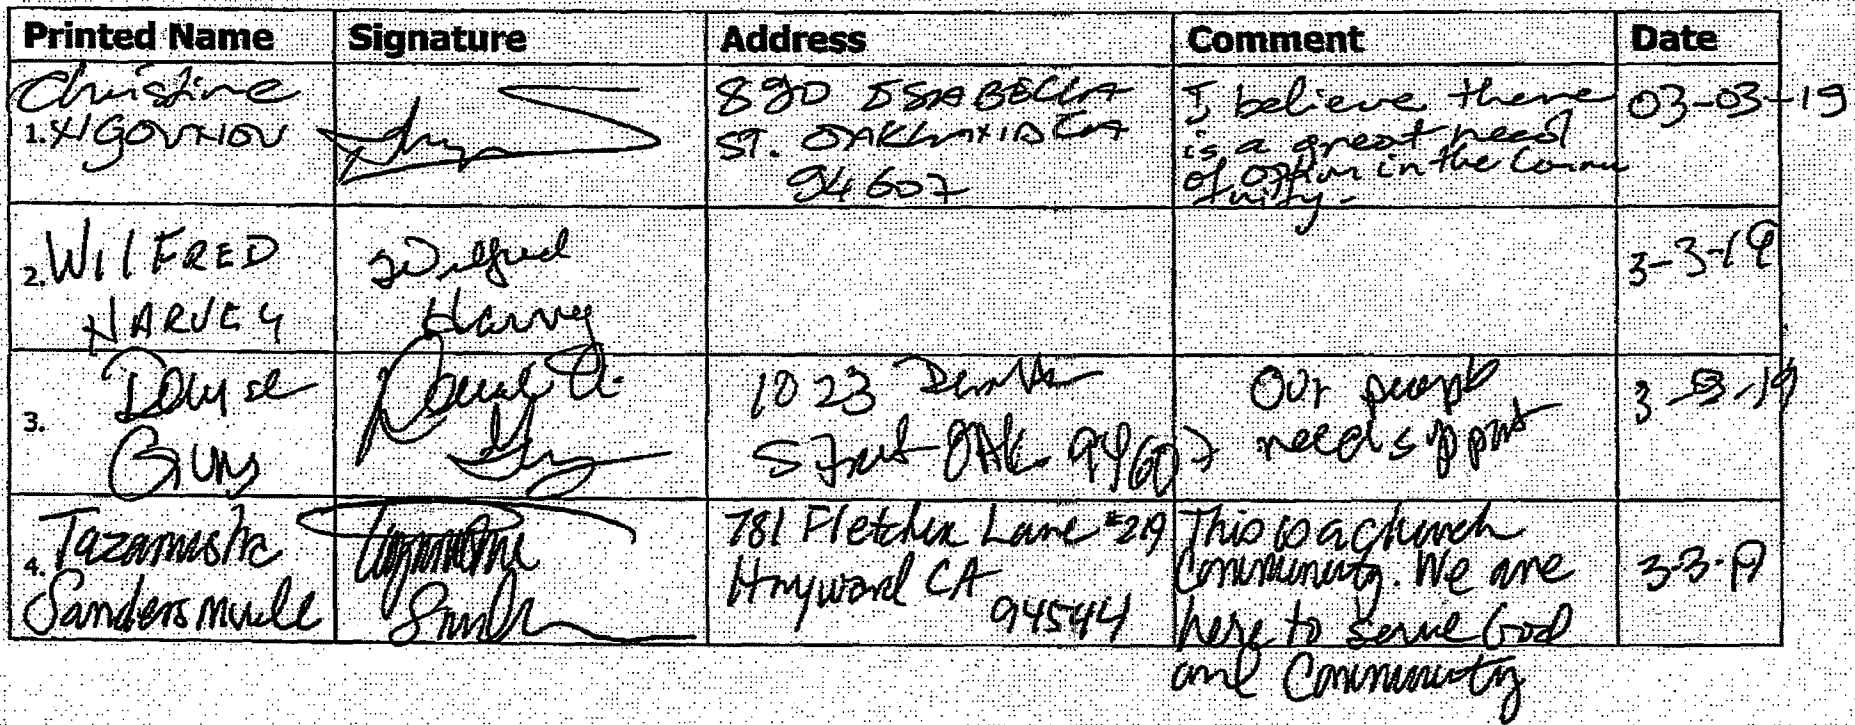 Printed Name Signature Address Comment Date
1. Christine
890 ISABELLA
ST. OAKLAND CA
94607
I believe there
is a great need
of option in the Commu
nity.
03-03-19
2. WILFRED
HARVEY
Wilfred
Harvey
3-3-19
3.
1023
Street OAK. 94607
Our people
need support
3-3-19
4.
781 Fletcher Lane #219
Hayward CA
94544
This is a church
Community. We are
here to serve God
and Community
3-3-19